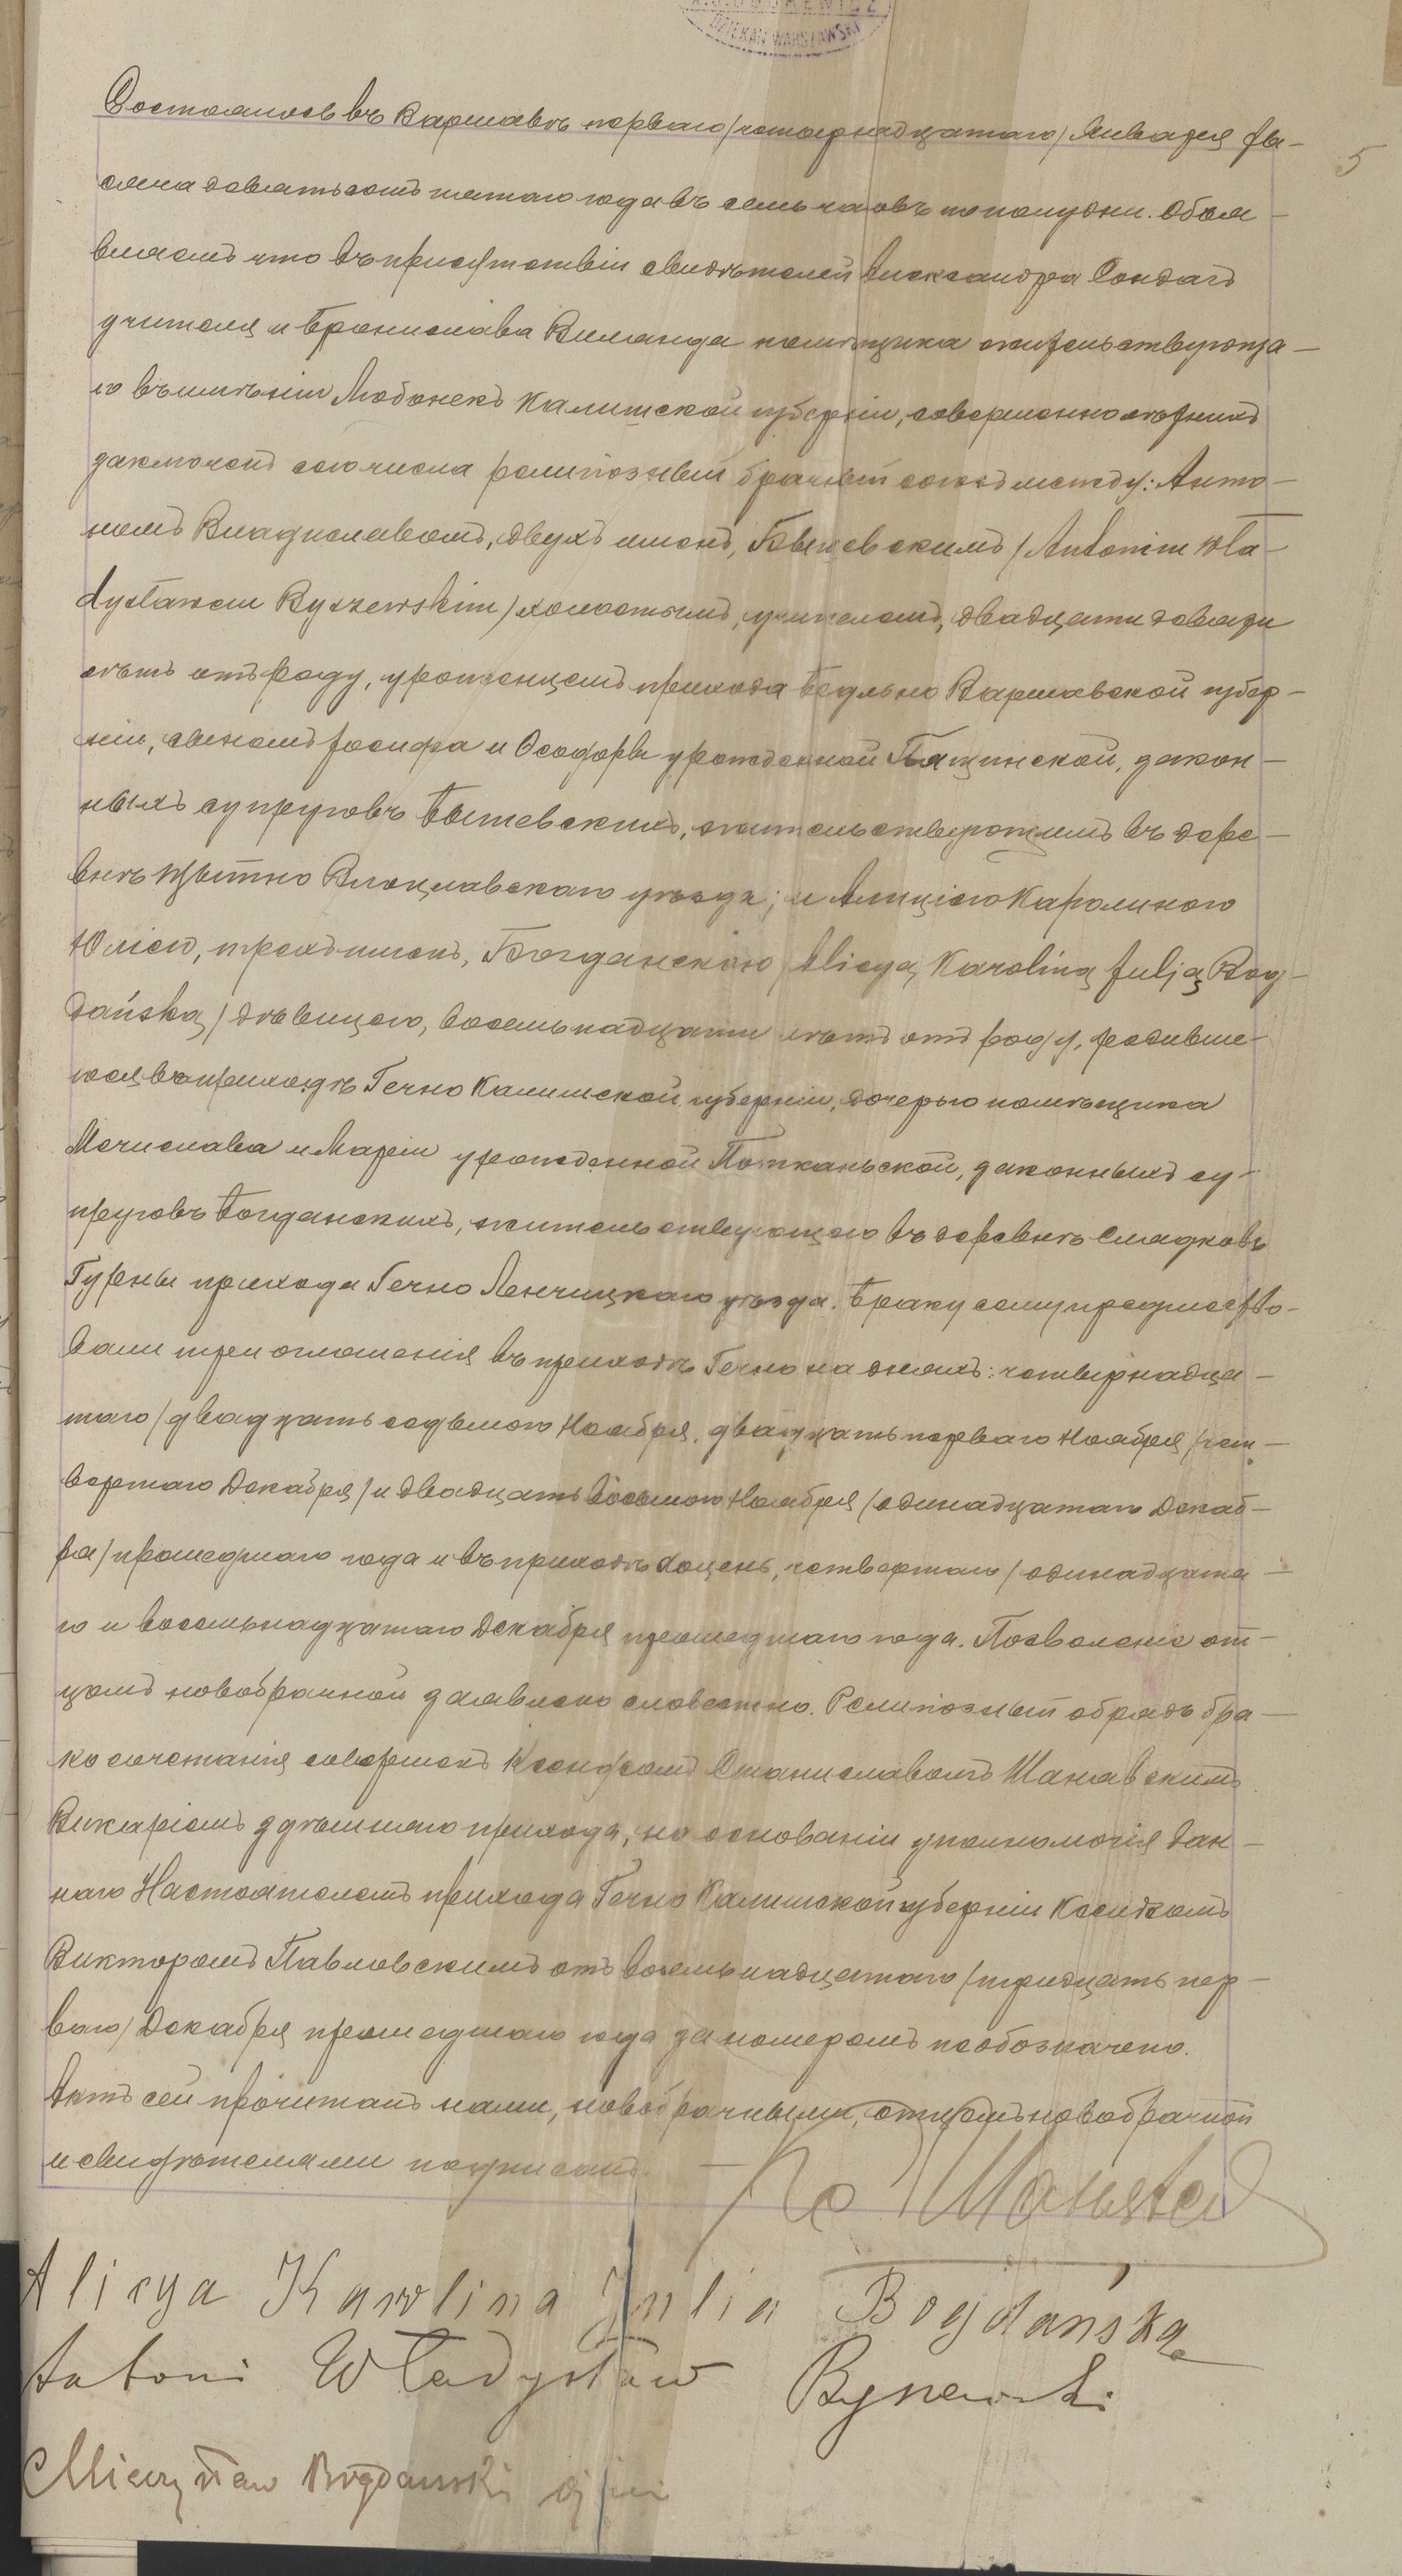 DZIEKAN WARSZAWSKI
5
Состоялось въ Варшавѣ перваго /четырнадцатаго/ Января ты-
сяча девятьсотъ пятаго года въ семь часовъ пополудни. Объя-
вляемъ что въ присутствіи свидѣтелей Александра Сондагъ
учителя и Бронислава Виланда помѣщика жительствующа-
го въ имѣніи Любонекъ Калишской губерніи, совершеннолѣтнихъ
заключенъ сего числа религіозный брачный союзъ между: Анто-
номъ Владиславомъ, двухъ именъ, Бышевскимъ /Antonim Wła-
dysławem Byszewskim/ холостымъ, учителемъ, двадцати девяти
лѣтъ отъ роду, уроженцемъ прихода Бедльно Варшавской губер-
ніи, сыномъ Іосифа и Ѳеодоры урожденной закон-
ныхъ супруговъ Бышевскихъ, жительствующимъ въ дерев-
внѣ Влоцлавскаго уѣзда; и Алицією Каролиною
Юлією, трехъ именъ, Богданскою /Alicyą Karoliną Julją Bog-
dańską/ дѣвицею, восемьнадцати лѣтъ отъ роду, родивше-
юся въ приходѣ Гечно Калишской губерніи, дочерью помѣщика
Мечислава и Маріи урожденной Потканьской, законныхъ су-
пруговъ Богданскихъ, жительствующею въ деревнѣ Сладковъ
Гурны прихода Гечно Ленчицкаго уѣзда. Браку сему предшество-
вали три оглашенія въ приходѣ Гечно на дняхъ: четырнадца-
таго /двадцать седьмого Ноября, двадцать перваго Ноября /чет-
вертаго Декабря/ и двадцать восьмого Ноября /одинадцатаго Декаб-
ря/ прошедшаго года и въ приходѣ Хоцень, четвертаго /одинадцата-
го и восемьнадцатаго Декабря прошедшаго года. Позволеніе от-
цомъ новобрачной заявлено словестно. Религіозный обрядъ бра-
косочетанія совершенъ Ксендзомъ Станиславомъ
Викаріемъ здѣшняго прихода, на основаніи уполномочія дан-
наго Настоятелемъ прихода Гечно Калишской губерніи Ксендзомъ
Викторомъ Павловскимъ отъ восемьнадцатаго /тридцать пер-
ваго/ Декабря прошедшаго года за номеромъ необозначено.
Актъ сей прочитанъ нами, новобрачными, отцомъ новобрачной
и свидѣтелями подписанъ.
Alicya Karolina Julia Bogdańska
Antoni Władysław Byszewski
Mieczysław Bogdanski ojciec